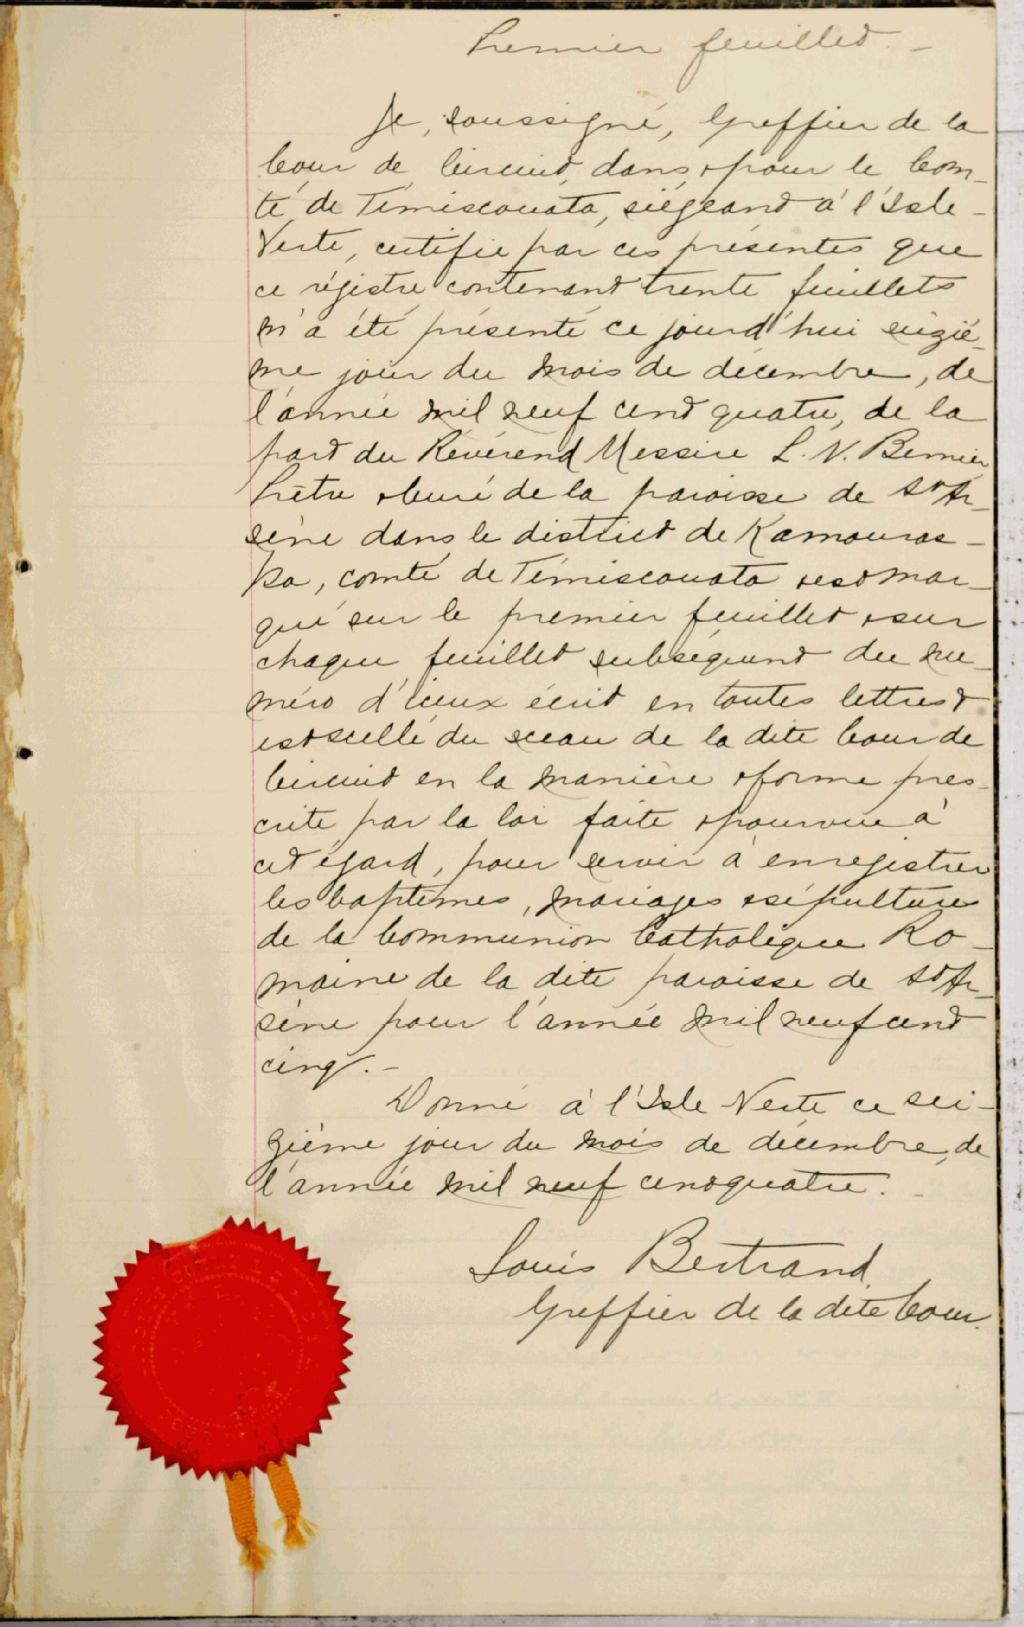 Premier feuillet. -
Je, soussigné, Greffier de la
Cour de Circuit, dans & pour le Com-
té de Témiscouata, siégeant à l'Isle-
Verte, certifie par ces présentes que
ce régistre contenant trente feuillets
m'a été présenté ce jourd'hui seiziè-
me jour du mois de décembre, de
l'année mil neuf cent quatre, de la
part du Révérend Messire L. N. Bernier
Prêtre & Curé de la paroisse de St Ar-
sène dans le district de Kamouras-
ka, comté de Témiscouata & est mar-
qué sur le premier feuillet & sur
chaque feuillet subséquent du nu-
méro d'iceux écrit en toutes lettres &
est scellé du sceau de la dite Cour de
Circuit en la manière & forme pres-
crite par la loi faite & pourvue à
cet égard, pour servir à enregistrer
les baptêmes, mariages & sépultures
de la Communion Catholique Ro-
maine de la dite paroisse de St Ar-
sène pour l'année mil neuf cent
cinq. -
Donné à l'Isle Verte ce sei-
zième jour du mois de décembre, de
l'année mil neuf cent quatre. -
Louis Bertrand
Greffier de la dite Cour.